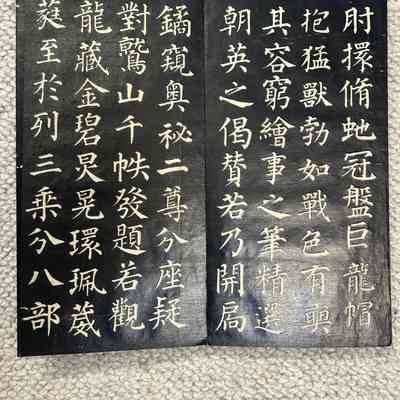 肘擐脩虵冠盤巨龍帽
抱猛獸勃如戰色有奭
其容窮繪事之筆精選
朝英之偈賛若乃開扃
鐍窺奧祕二尊分座疑
對鷲山千帙發題若觀
龍藏金碧炅晃環珮葳
蕤至於列三乘分八部